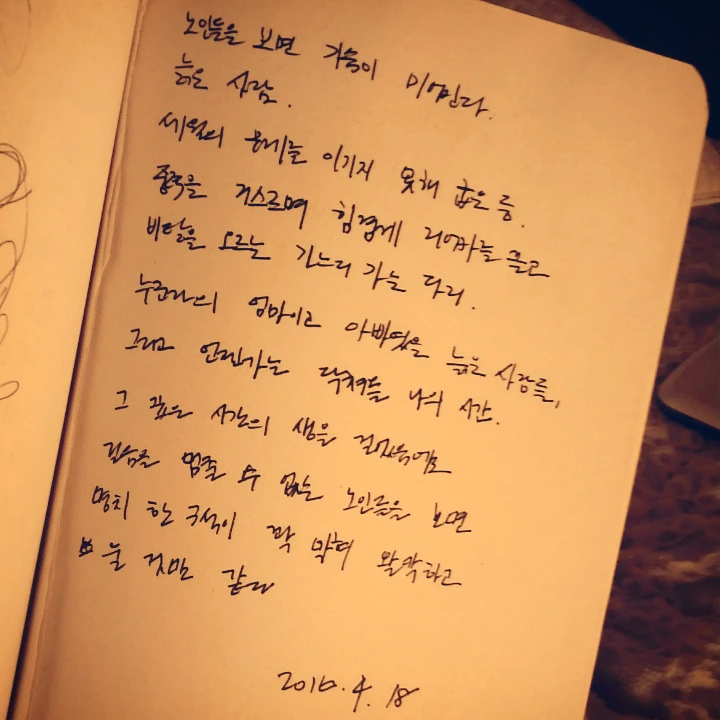 노인들을 보면 가슴이 미어진다.
늙은 사람.
세월의 무게를 이기지 못해 굽은 등.
중력을 거스르며 힘겹게 리어카를 끌고
비탈을 오르는 가느다란 다리.
누군가의 엄마이고 아빠였을 늙은 사람들,
그리고 언젠가는 닥쳐올 나의 시간.
그 깊은 시간의 생을 걸었음에도
걸음을 멈출 수 없는 노인들을 보면
명치 한 구석이 꽉 막혀 왈칵하고
눈 것만 같다
2016.4.18